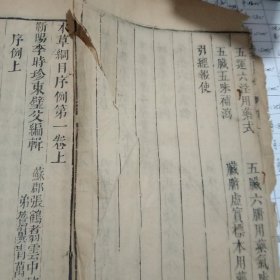 本草綱目序例第一卷上
蘄陽李時珍東璧父編輯
蘇郡張鶴翥雲中
序例上
五運六淫用藥式
五臟六腑用藥氣
五臟五味補瀉
臟腑虛實標本用藥
引經報使